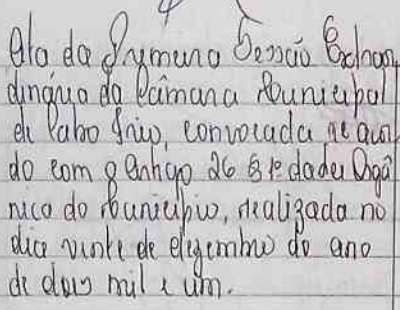 Ata da Primeira Sessão Extraor
dinária da Câmara Municipal
de Cabo Frio, convocada de acor
do com o Artigo 26 § 1º da Lei Orgâ
nica do Município, realizada no
dia vinte de dezembro do ano
de dois mil e um.